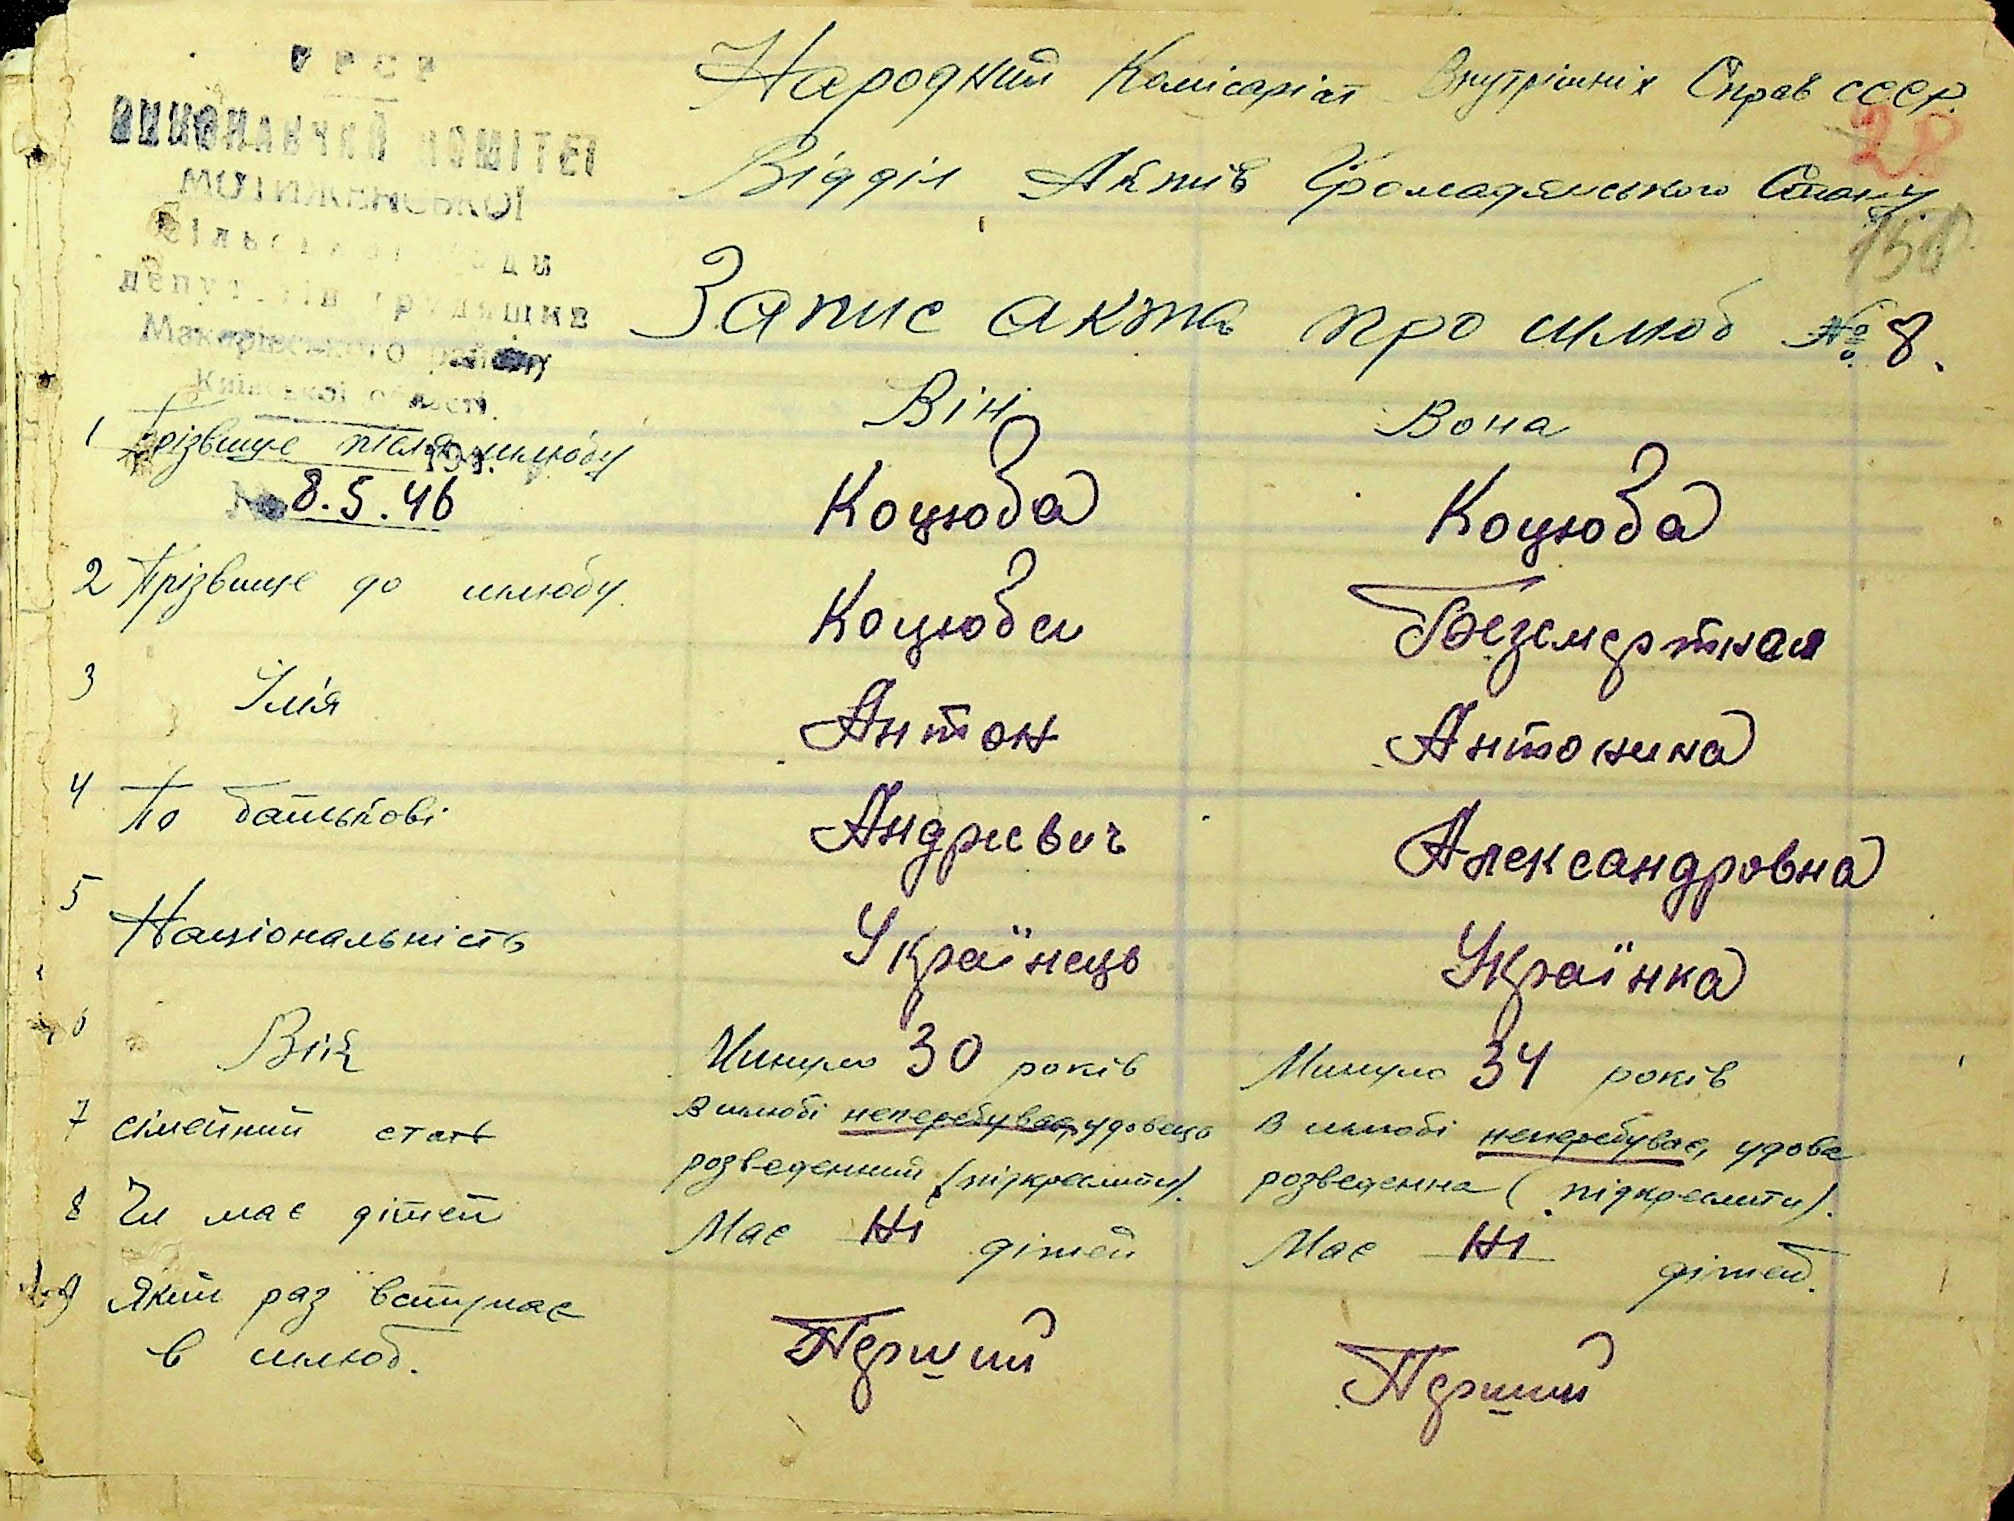 УРСР
Виконавчий
Народний Комісаріат Внутрішніх Справ СССР.
28
Відділ Актів Громадянського Стану
158
Запис акта про шлюб № 8.
депутатів трудящих
Макарівського району
Київської області
Він Вона
1 Прізвище після шлюбу Коцюба Коцюба
№ 8.5.46
2 Прізвище до шлюбу. Коцюба Безсмертная
3 Імя Антон Антонина
4 По батькові Андриевич Александровна
5 Національність Українець Українка
6 Вік Минуло 30 років Минуло 34 років
7 сімейний стань В шлюбі неперебуває, удовець В шлюбі неперебуває, удова
розведенний (підкреслити). розведенна (підкреслити).
8 Чи має дітей Має Ні дітей Має Ні дітей.
9 Який раз вступає Перший Перший
в шлюб.